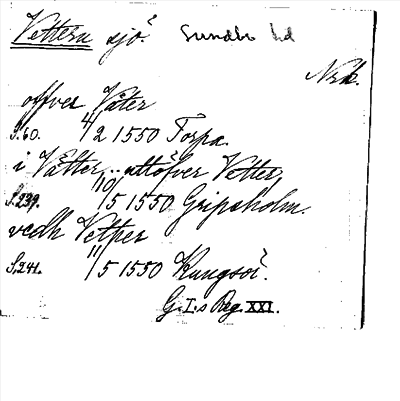 Vettern sjö. Sundbo hd
Nrk.
offver Väter
S.60. 4/2 1550 Torpa.
i Vätter, .. uttöfver Vetter,
S.239. 10/5 1550 Gripsholm.
vedh Vetther
S.241. 11/5 1550 Kungsör.
G.I:s Reg. XXI.